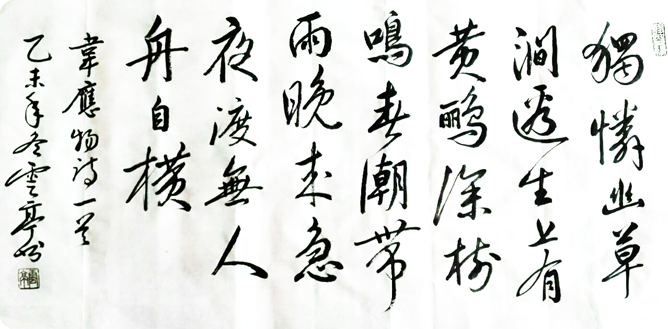 獨憐幽草
澗邊生上有
黄鹂深樹
鳴春潮帶
雨晚来急
夜渡無人
舟自横
韋應物詩一首
乙未年冬雲亭书